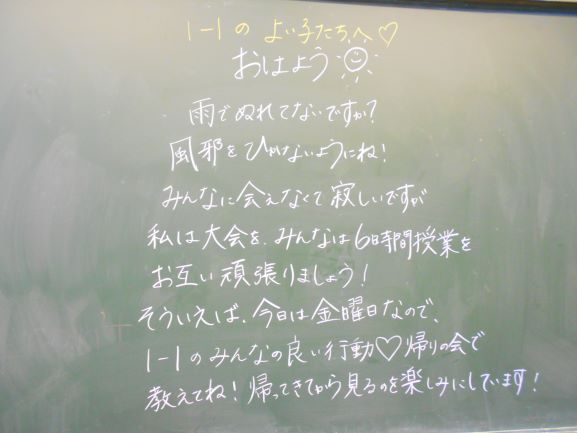 1-1の よい子たちへ♡
おはよう
雨でぬれてないですか?
風邪をひかないようにね!
みんなに会えなくて寂しいですが
私は大会を、みんなは6時間授業を
お互い頑張りましょう!
そういえば、今日は金曜日なので、
1-1のみんなの良い行動♡帰りの会で
教えてね!帰ってきてから見るのを楽しみにしています!